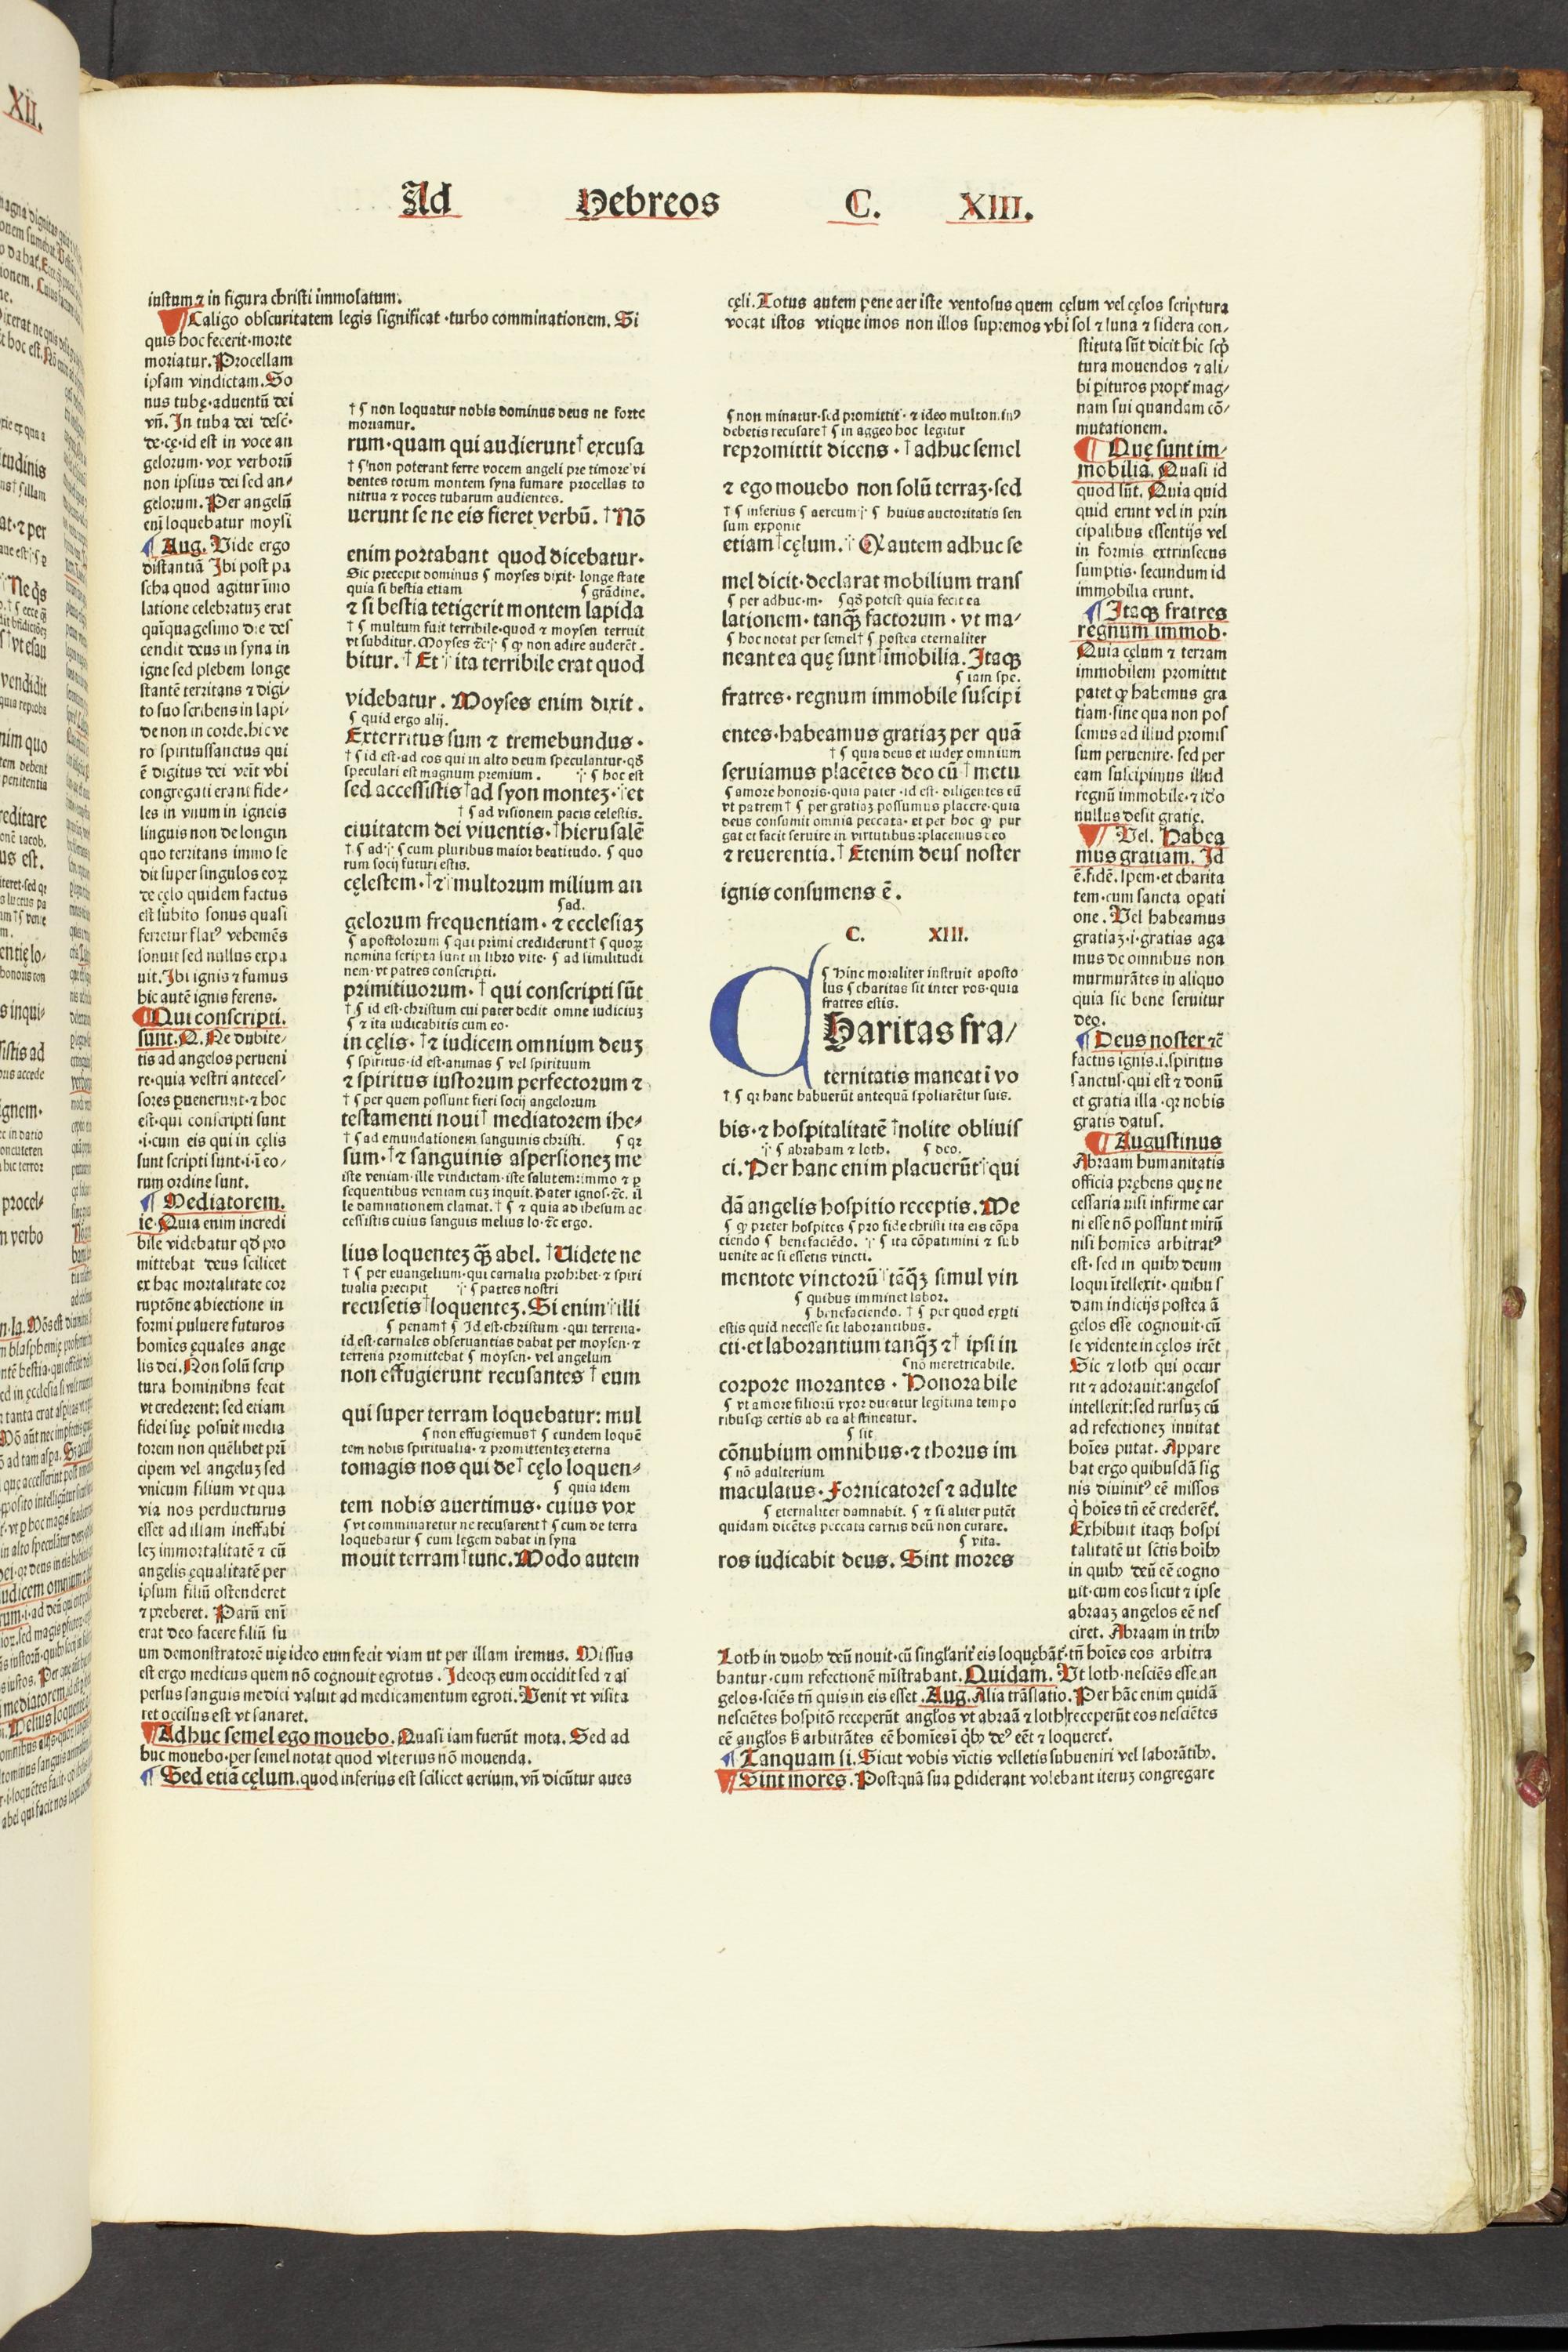 Ad Hebreos C. XIII.
iustum ⁊ in figura christi immolatum.
Caligo obscuritatem legis significat·turbo comminationem. Si
quis hoc fecerit·morte
moriatur. Procellam
ipsam vindictam. So
nus tubę·aduentū dei
vñ. In tuba dei desc̄·
de·cę·id est in voce an
gelorum·vox verborū
non ipsius dei sed an⸗
gelorum. Per angelū
enī loquebatur moysi
Aug. Vide ergo
distantiā Ibi post pa
scha quod agitur īmo
latione celebratuʒ erat
quīquagesimo die des
cendit deus in syna in
igne sed plebem longe
stantē territans ⁊ digi⸗
to suo scribens in lapi⸗
de non in corde.hic ve
ro spiritussanctus qui
ē digitus dei veīt vbi
congregati erant fide⸗
les in vnum in igneis
linguis non de longin
quo territans immo se
dit super singulos eoꝝ
de cęlo quidem factus
est subito sonus quasi
ferretur flatꝰ vehemēs
sonuit sed nullus expa
uit. Ibi ignis ⁊ fumus
hic autē ignis ferens.
Qui conscripti.
sunt. Q. Ne dubite⸗
tis ad angelos perueni
re·quia vestri anteces⸗
sores ꝑuenerunt·⁊ hoc
est·qui conscripti sunt
·i·cum eis qui in cęlis
sunt scripti sunt·i·ī eo⸗
rum ordine sunt.
Mediatorem.
ie·Quia enim incredi
bile videbatur qđ pro
mittebat deus scilicet
ex hac mortalitate cor
ruptōne abiectione in
formi puluere futuros
homīes ęquales ange
lis dei. Non solū scrip
tura hominibns fecit
vt crederent: sed etiam
fidei suę posuit media
torem non quēlibet prī
cipem vel angeluʒ sed
vnicum filium vt qua
via nos perducturus
esset ad illam ineffabi
leʒ immortalitatē ⁊ cū
angelis ęqualitatē per
ipsum filiū ostenderet
⁊ preberet. Parū enī
erat deo facere filiū su
um demonstratorē uię ideo eum fecit viam ut per illam iremus. Missus
est ergo medicus quem nō cognouit egrotus. Ideoqꝫ eum occidit sed ⁊ as
persus sanguis medici valuit ad medicamentum egroti. Venit vt visita
ret occisus est vt sanaret.
Adhuc semel ego mouebo. Quasi iam fuerūt mota. Sed ad
huc mouebo·per semel notat quod vlterius nō mouenda.
Sed etiā cęlum.quod inferius est scilicet aerium, vñ dicūtur aues
† ʕ non loquatur nobis dominus deus ne forte
moriamur.
rum·quam qui audierunt† excusa
† ʕ non poterant ferre vocem angeli pre timore vi
dentes totum montem syna fumare procellas to
nitrua ⁊ voces tubarum audientes.
uerunt se ne eis fieret verbū. †Nō
enim portabant quod dicebatur·
Sic precepit dominus ʕ moyses dixit· longe state
quia si bestia etiam ʕ grādine.
⁊ si bestia tetigerit montem lapida
† ʕ multum fuit terribile·quod ⁊ moysen terruit
vt subditur. Moyses ⁊c̄·჻ ʕ ꝙ non adire auderēt.
bitur. † Et჻ ita terribile erat quod
videbatur. Moyses enim dixit.
ʕ quid ergo alij.
Exterritus sum ⁊ tremebundus·
† ʕ id est·ad eos qui in alto deum speculantur·qđ
speculari est magnum premium. ჻ ʕ hoc est
sed accessistis†ad syon monteʒ·჻et
† ʕ ad visionem pacis celestis.
ciuitatem dei viuentis·†hierusalē
† ʕ ad·჻ ʕ cum pluribus maior beatitudo. ʕ quo
rum socij futuri estis.
cęlestem·†⁊჻multorum milium an
ʕ ad.
gelorum frequentiam·⁊ ecclesiaʒ
ʕ apostolorum ʕ qui primi crediderunt† ʕ quoꝝ
nomina scripta sunt in libro vite· ʕ ad similitudi
nem·vt patres conscripti.
primitiuorum·† qui conscripti sūt
† ʕ id est·christum cui pater dedit omne iudiciuʒ
ʕ ⁊ ita iudicabitis cum eo·
in cęlis· †⁊ iudicem omnium deuʒ
ʕ spiritus·id est·animas ʕ vel spirituum
⁊ spiritus iustorum perfectorum ⁊
† ʕ per quem possunt fieri socij angelorum
testamenti noui† mediatorem ihe⸗
† ʕ ad emundationem sanguinis christi. ʕ qꝛ
sum·†⁊ sanguinis aspersioneʒ me
iste veniam·ille vindictam·iste salutem:immo ⁊ ꝑ
sequentibus veniam cuʒ inquit. Pater ignos·⁊c̄. il
le damnationem clamat. † ʕ ⁊ quia ad ihesum ac
cessistis cuius sanguis melius lo·⁊c̄ ergo.
lius loquenteʒ ꝙ̄ abel. †Uidete ne
† ʕ per euangelium·qui carnalia prohibet·⁊ spiri
tualia precipit ჻ ʕ patres nostri
recusetis†loquenteʒ. Si enim჻illi
ʕ penam† ʕ Id est·christum·qui terrena·
id est·carnales obseruantias dabat per moysen·⁊
terrena promittebat ʕ moysen·vel angelum
non effugierunt recusantes † eum
qui super terram loquebatur: mul
ʕ non effugiemus† ʕ eundem loquē
tem nobis spiritualia·⁊ promittenteʒ eterna
tomagis nos qui de† cęlo loquen⸗
ʕ quia idem
tem nobis auertimus· cuius vox
ʕ vt comminaretur ne recusarent† ʕ cum de terra
loquebatur ʕ cum legem dabat in syna
mouit terram†tunc. Modo autem
cęli. Totus autem pene aer iste ventosus quem cęlum vel cęlos scriptura
vocat istos vtique imos non illos supremos vbi sol ⁊ luna ⁊ sidera con⸗
ʕ non minatur·sed promittit·⁊ ideo multon.inꝰ
debetis recusare† ʕ in aggeo hoc legitur
repromittit dicens·†adhuc semel
⁊ ego mouebo non solū terraʒ·sed
† ʕ inferius ʕ aereum჻ ʕ huius auctoritatis sen
sum exponit
etiam†cęlum.჻ Ꝙ autem adhuc se
mel dicit·declarat mobilium trans
ʕ per adhuc·m· ʕ qđ potest quia fecit ea
lationem·tanꝙ̄ factorum·vt ma⸗
ʕ hoc notat per semel† ʕ postea eternaliter
neant ea quę sunt†īmobilia. Itaqꝫ
ʕ iam spe.
fratres·regnum immobile suscipi
entes·habeamus gratiaʒ per quā
† ʕ quia deus et iudex omnium
seruiamus placētes deo cū†metu
ʕ amore honoris·quia pater·id est·diligentes eū
vt patrem† ʕ per gratiaʒ possumus placere·quia
deus consumit omnia peccata·et per hoc ꝙ pur
gat et facit seruire in virtutibus:placemus deo
⁊ reuerentia.† Etenim deus noster
ignis consumens ē.
C. XIII.
ʕ Hinc moraliter instruit aposto
lus ʕ charitas sit inter vos·quia
fratres estis.
CHaritas fra⸗
ternitatis maneat ī vo
† ʕ qꝛ hanc habuerūt antequā spoliarētur suis.
bis·⁊ hospitalitatē†nolite obliuis
჻ ʕ abraham ⁊ loth. ʕ deo.
ci. Per hanc enim placuerūt჻qui
dā angelis hospitio receptis. Me
ʕ ꝙ preter hospites ʕ pro fide christi ita eis cōpa
ciendo ʕ benefaciēdo. ჻ ʕ ita cōpatimini ⁊ sub
uenite ac si essetis vincti.
mentote vinctorū†tāꝙ̄ simul vin
ʕ quibus imminet labor.
ʕ benefaciendo. † ʕ per quod exꝑti
estis quid necesse sit laborantibus.
cti·et laborantium tanꝙ̄ ⁊† ipsi in
ʕ nō meretricabile.
corpore morantes·Honorabile
ʕ vt amore filiorū vxor ducatur legitima tempo
ribusqꝫ certis ab ea abstineatur.
ʕ sit
cōnubium omnibus·⁊ thorus im
ʕ nō adulterium
maculatus·Fornicatores ⁊ adulte
ʕ eternaliter damnabit. ʕ ⁊ si aliter putēt
quidam dicētes peccata carnis deū non curare.
ʕ vita.
ros iudicabit deus. Sint mores
stituta sūt dicit hic scꝑ
tura mouendos ⁊ ali⸗
bi ꝑituros propt̄ mag⸗
nam sui quandam cō⸗
mutationem.
Quę sunt im⸗
mobilia. Quasi id
quod sūt. Quia quid
quid erunt vel in prin
cipalibus essentijs vel
in formis extrinsecus
sumptis·secundum id
immobilia erunt.
Itaqꝫ fratres
regnum immob·
Quia cęlum ⁊ terram
immobilem promittit
patet ꝙ habemus gra
tiam·sine qua non pos
semus ad illud promis
sum peruenire·sed per
eam suscipimus illud
regnū immobile·⁊ iđo
nullus desit gratię.
Vel. Habea
mus gratiam. Id
ē.fidē. spem·et charita
tem·cum sancta oꝑati
one. Vel habeamus
gratiaʒ·i·gratias aga
mus de omnibus non
murmurātes in aliquo
quia sic bene seruitur
deo.
Deus noster ⁊c̄
factus ignis.i.spiritus
sanctus·qui est ⁊ donū
et gratia illa·qꝛ nobis
gratis datus.
Augustinus
Abraam humanitatis
officia prębens quę ne
cessaria nisi infirme car
ni esse nō possunt mirū
nisi homīes arbitratꝰ
est·sed in quibꝫ deum
loqui ītellexit·quibus
dam indicijs postea ā
gelos esse cognouit·cū
se vidente in cęlos irēt
Sic ⁊ loth qui occur
rit ⁊ adorauit:angelos
intellexit:sed rursuʒ cū
ad refectioneʒ inuitat
hoīes putat. Appare
bat ergo quibusdā sig
nis diuinitꝰ eē missos
q̇ hoīes tn̄ eē crederēt᷑.
Exhibuit itaqꝫ hospi
talitatē ut sc̄tis hoībꝫ
in quibꝫ deū eē cogno
uit·cum eos sicut ⁊ ipse
abraaʒ angelos eē nes
ciret. Abraam in tribꝫ
Loth in duobꝫ deū nouit·cū singlarit᷑ eis loquębāt᷑·tn̄ hoīes eos arbitra
bantur·cum refectionē mīstrabant. Quidam. Ut loth·nesciēs esse an
gelos·sciēs tn̄ quis in eis esset. Aug. Alia trāslatio. Per hāc enim quidā
nesciētes hospitō receperūt angl̄os vt abraā ⁊ loth|receperūt eos nesciētes
eē angl̄os ꝭ arbitrātes eē homīes ī q̇bꝫ deꝰ eēt ⁊ loqueret᷑.
Tanquam si. Sicut vobis vīctis velletis subueniri vel laborātibꝫ.
Sint mores. Postquā sua ꝑdiderant volebant iteruʒ congregare